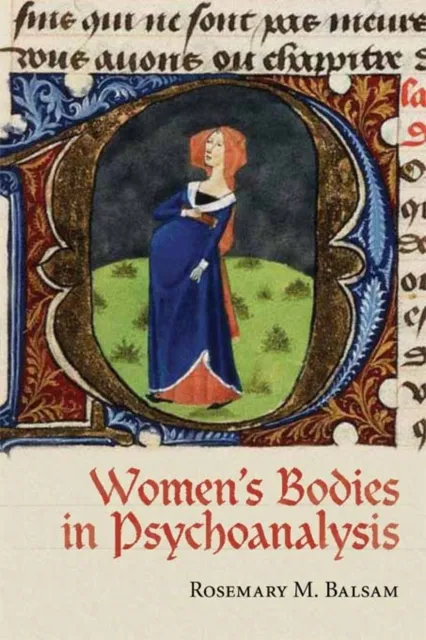 sins qui ne sont pas meurs
vous auons ou chappitre
la
Women's Bodies
in Psychoanalysis
Rosemary M. Balsam